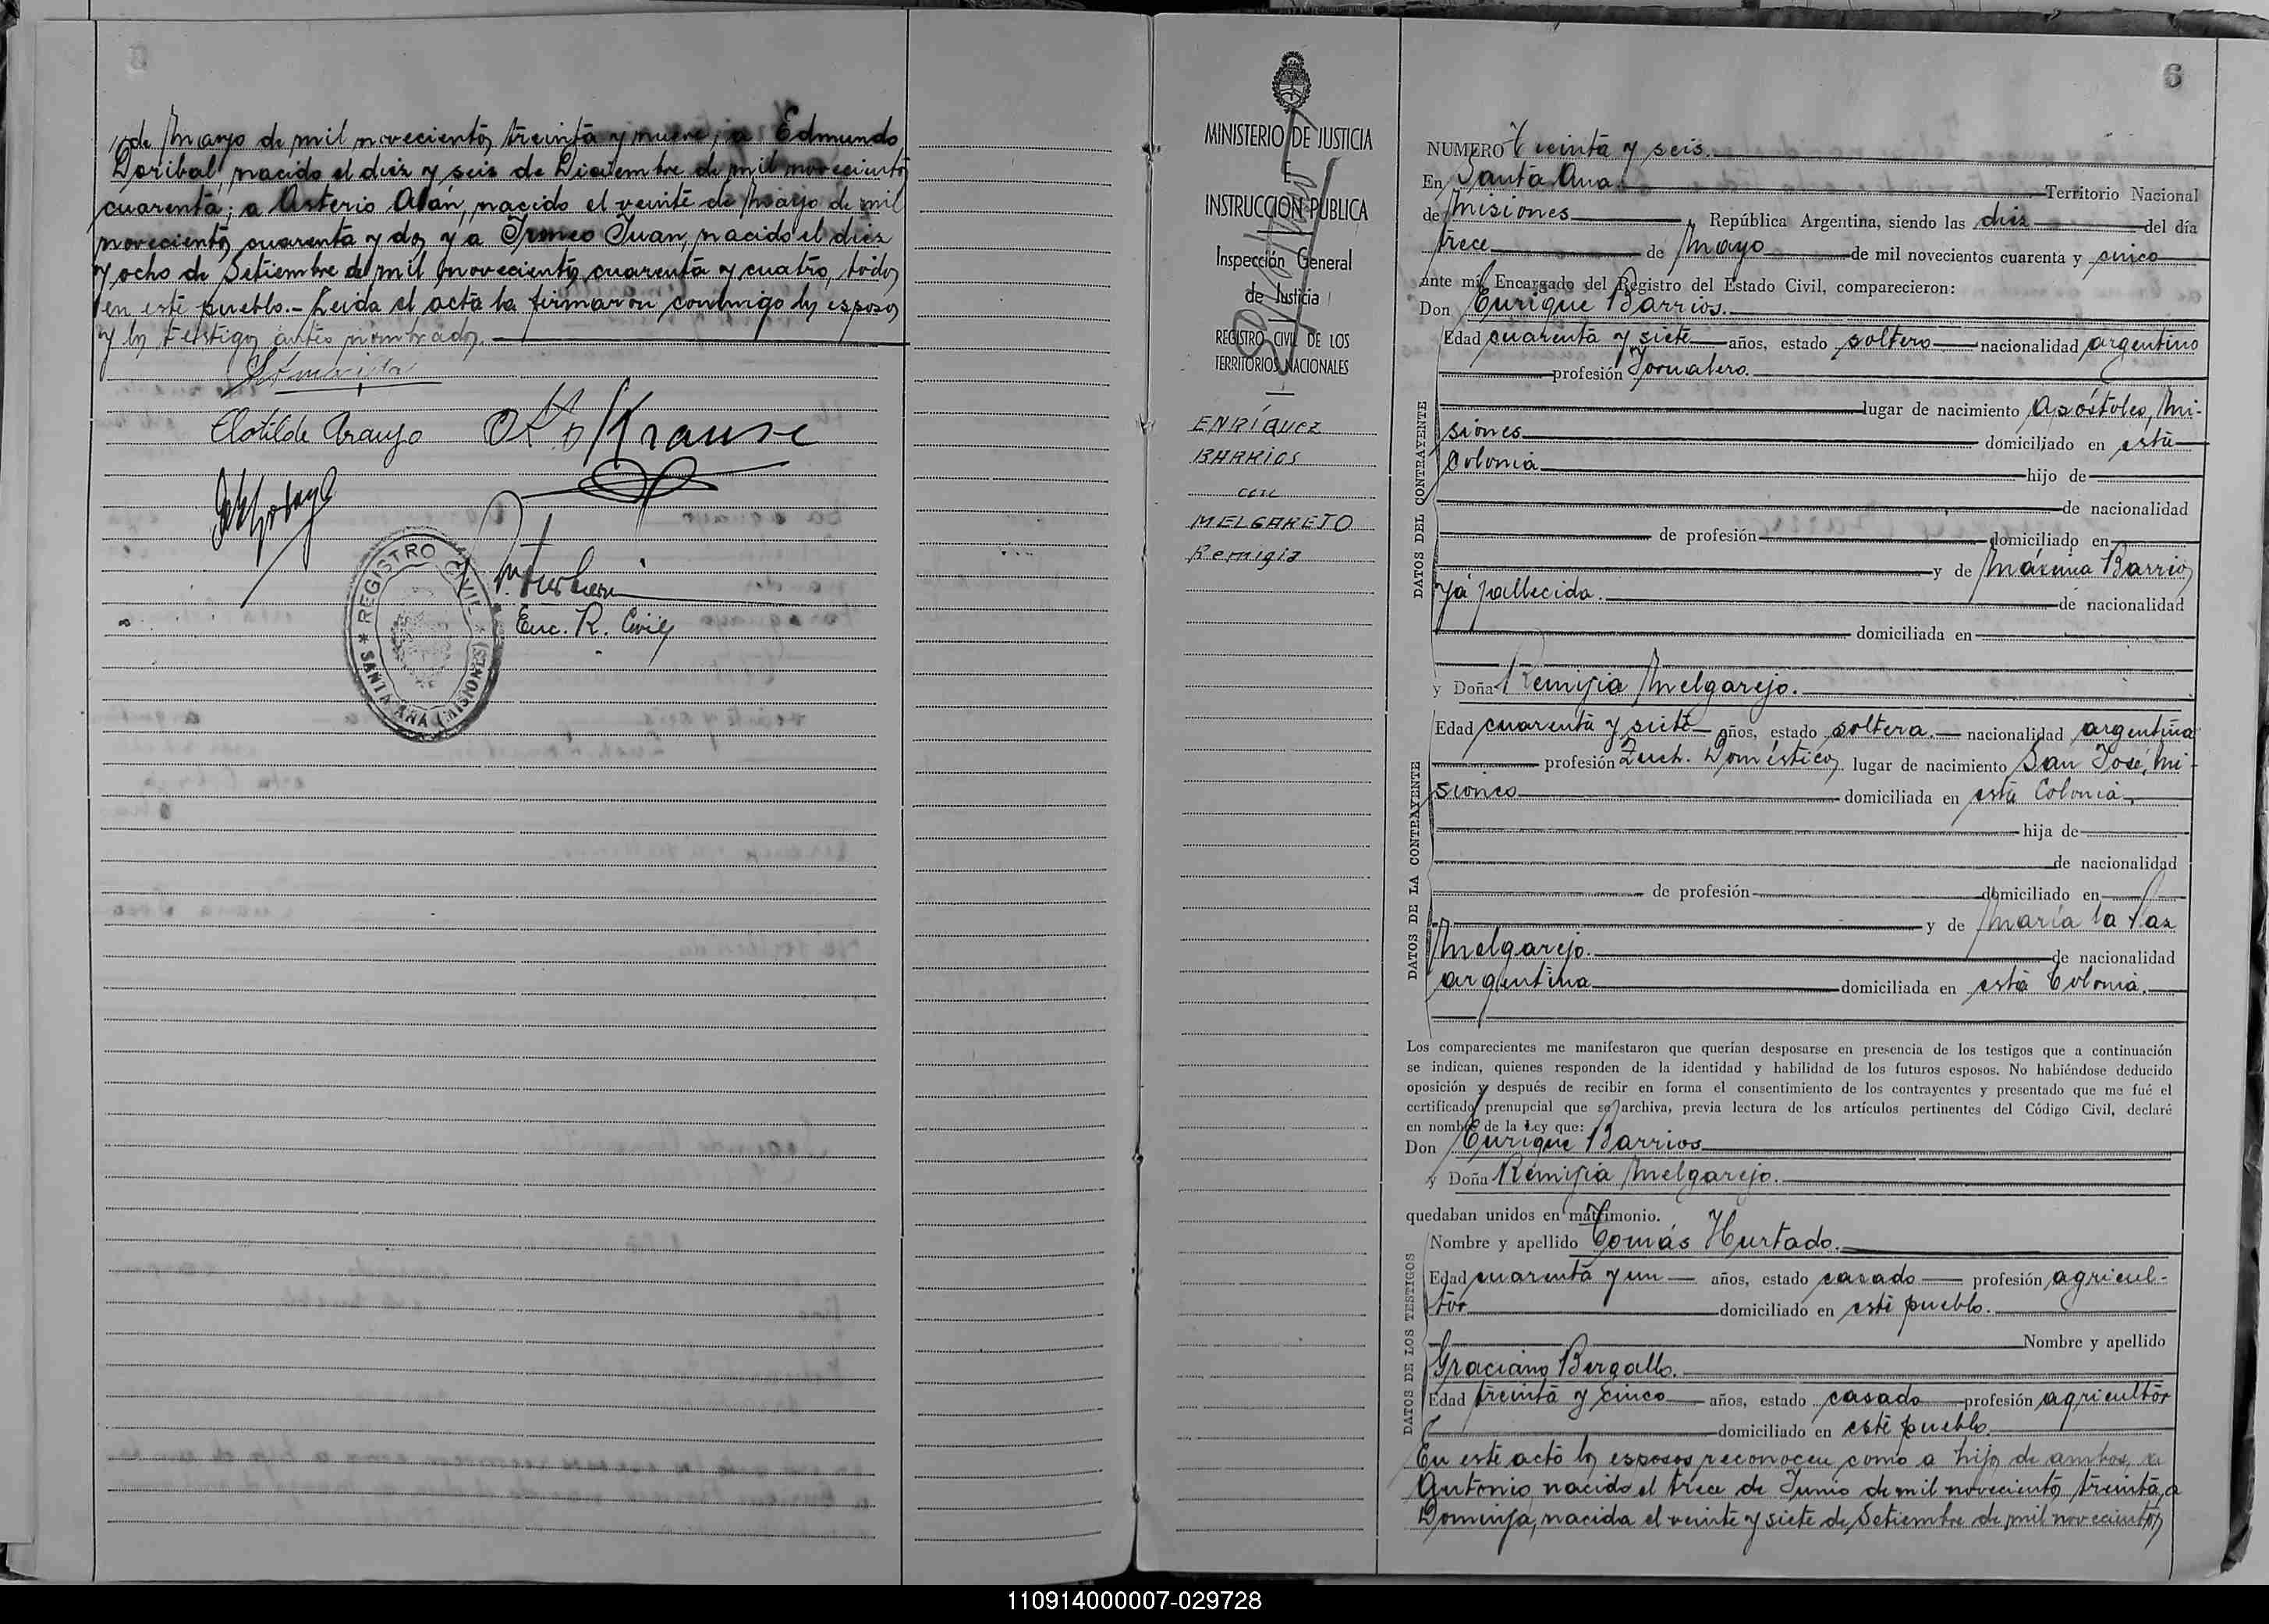 de Mayo de mil novecientos treinta y nueve; a Edmundo
Doribal, nacido el diez y seis de Diciembre de mil novecientos
cuarenta; a Asterio Adán, nacido el veinte de Mayo de mil
novecientos cuarenta y dos y a Ireneo Juan, nacido el diez
y ocho de Setiembre de mil novecientos cuarenta y cuatro, todos
en este pueblo.- Leida el acta la firmaron conmigo los esposos
y los testigos antes nombrados.
Clotilde Araujo Otto Krause
Enc. R. Civil
REGISTRO CIVIL
* SANTA ANA (MISIONES) *
6
MINISTERIO DE JUSTICIA
E
INSTRUCCION PUBLICA
Inspección General
de Justicia
REGISTRO CIVIL DE LOS
TERRITORIOS NACIONALES
ENRÍQUEZ
BARRIOS
con
MELGAREJO
Remigia
NUMERO Veinta y seis.
En Santa Ana Territorio Nacional
de Misiones, República Argentina, siendo las diez del día
trece de Mayo de mil novecientos cuarenta y cinco
ante mí, Encargado del Registro del Estado Civil, comparecieron:
Don Enrique Barrios.
DATOS DEL CONTRAYENTE
Edad cuarenta y siete años, estado soltero nacionalidad argentino
profesión Jornalero.
lugar de nacimiento Apóstoles, Mi-
siones domiciliado en esta
Colonia hijo de
de nacionalidad
de profesión domiciliado en
y de Máxima Barrios
ya fallecida. de nacionalidad
domiciliada en
y Doña Remigia Melgarejo.
DATOS DE LA CONTRAYENTE
Edad cuarenta y siete años, estado soltera. nacionalidad argentina
profesión Queh. Domésticos lugar de nacimiento San José, Mi-
siones domiciliada en esta Colonia.
hija de
de nacionalidad
de profesión domiciliado en
y de María la Paz
Melgarejo. de nacionalidad
argentina domiciliada en esta Colonia.
Los comparecientes me manifestaron que querían desposarse en presencia de los testigos que a continuación
se indican, quienes responden de la identidad y habilidad de los futuros esposos. No habiéndose deducido
oposición y después de recibir en forma el consentimiento de los contrayentes y presentado que me fué el
certificado prenupcial que se archiva, previa lectura de los artículos pertinentes del Código Civil, declaré
en nombre de la Ley que:
Don Enrique Barrios
y Doña Remigia Melgarejo.
quedaban unidos en matrimonio.
DATOS DE LOS TESTIGOS
Nombre y apellido Tomás Hurtado.
Edad cuarenta y un años, estado casado profesión agricul-
tor domiciliado en este pueblo.
Nombre y apellido
Graciano Bergallo.
Edad treinta y cinco años, estado casado profesión agricultor
domiciliado en este pueblo.
En este acto los esposos reconocen como a hijos de ambos, a
Antonio nacido el trece de Junio de mil novecientos treinta, a
Dominga, nacida el veinte y siete de Setiembre de mil novecientos
110914000007-029728